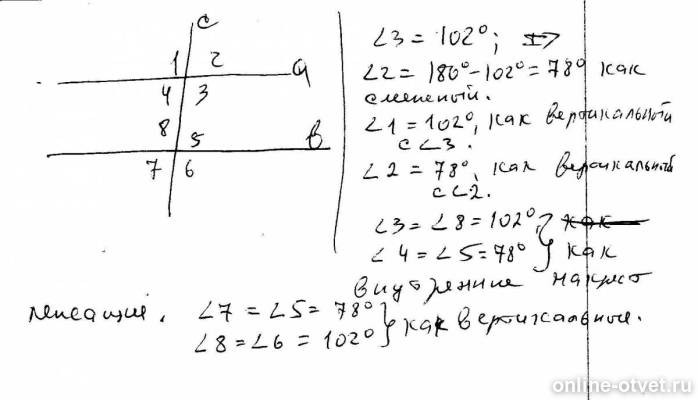 c
1 2 a
4 3
8 5 в
7 6
∠3 = 102°; ⇒
∠2 = 180° - 102° = 78° как
смежный.
∠1 = 102°, как вертикальный
с ∠3.
∠2 = 78°, как верикальный
с ∠2.
∠3 = ∠8 = 102° } как
∠4 = ∠5 = 78° } как
внутренние накрест
лежащие. ∠7 = ∠5 = 78° }
∠8 = ∠6 = 102° } как вертикальные.
online-otvet.ru